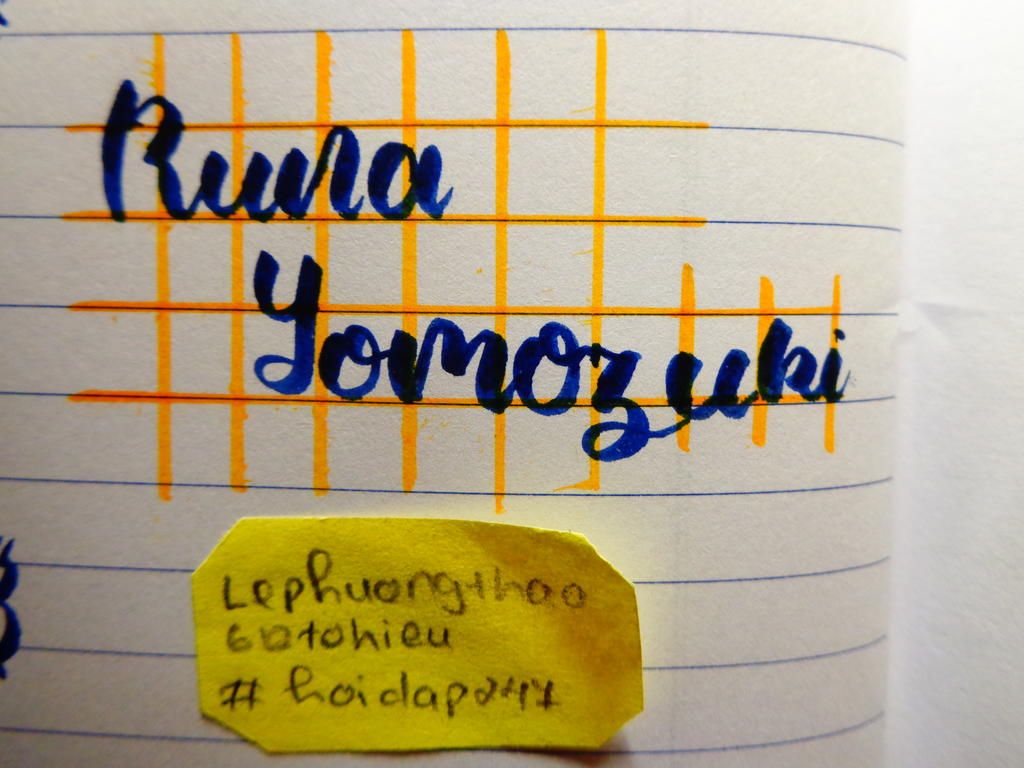 Runa
Yomozuki
Lephuongthao
6btohieu
# hoidap247